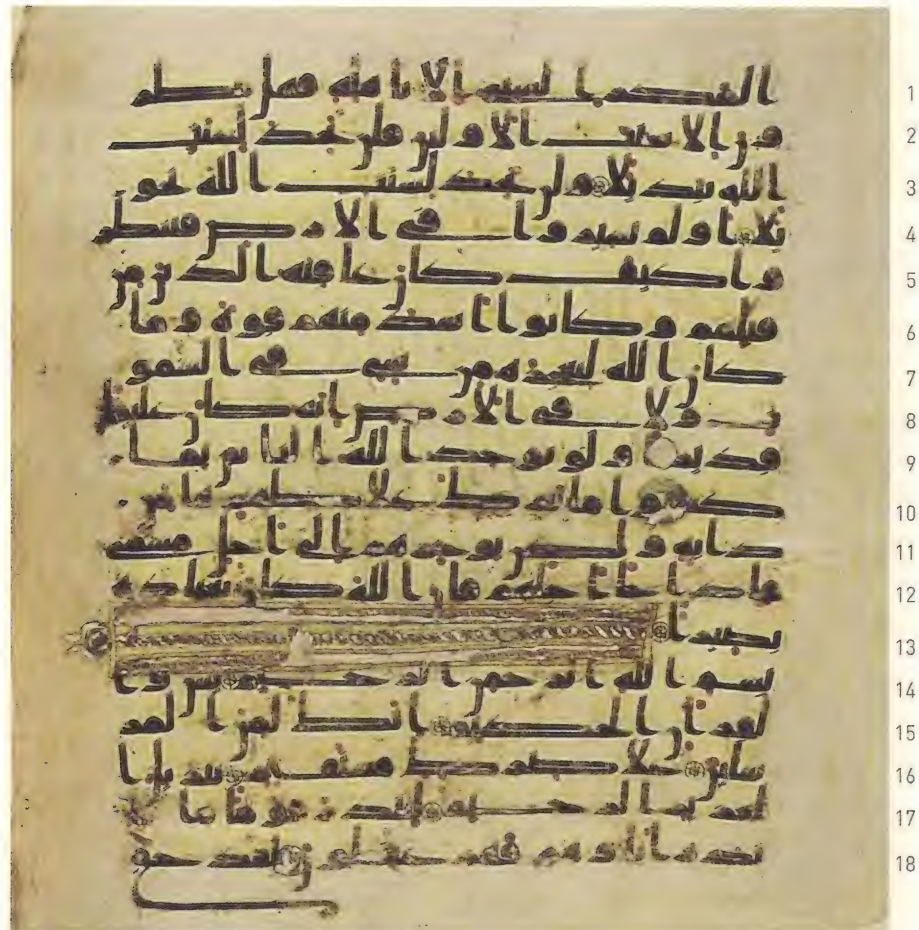 1 المكر السيى الا باهله فهل ينظر
2 ون الا سنت الاولين فلن تجد لسنت
3 الله تبديلا ولن تجد لسنت الله تحو
4 يلا اولم يسيروا في الارض فينظر
5 وا كيف كان عاقبه الذين من
6 قبلهم وكانوا اشد منهم قوة وما
7 كان الله ليعجزه من شي في السمو
8 ت ولا في الارض انه كان عليما
9 قديرا ولو يواخذ الله الناس بما
10 كسبوا ما ترك على ظهرها من
11 دابه ولكن يوخرهم الى اجل مسمى
12 فاذا جا اجلهم فان الله كان بعباده
13 بصيرا
14 بسم الله الرحمن الرحيم يس وا
15 لقران الحكيم انك لمن المر
16 سلين على صراط مستقيم تنزيل ا
17 لعزيز الرحيم لتنذر قوما ما ا
18 نذر اباوهم فهم غفلون لقد حق